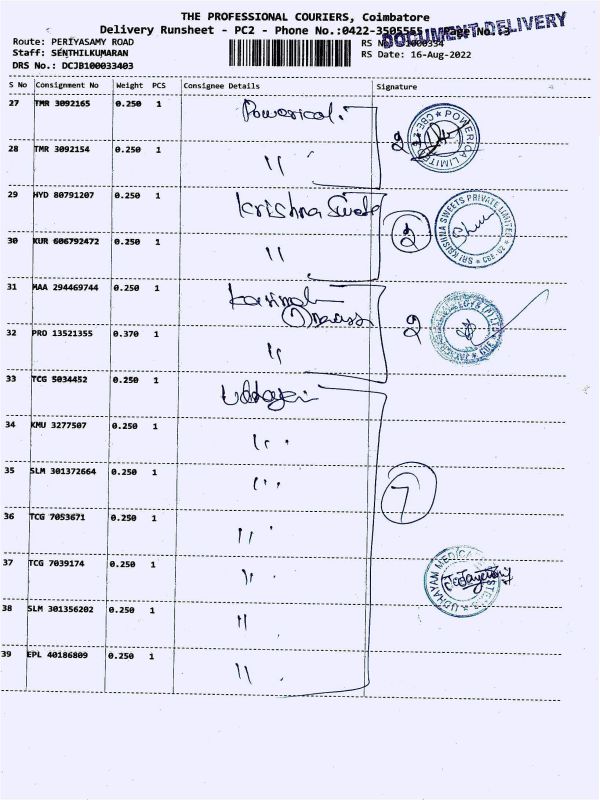 THE PROFESSIONAL COURIERS, Coimbatore
Delivery Runsheet - PC2 - Phone No.:0422-3505555
DOCUMENT DELIVERY
Route: PERIYASAMY ROAD
Staff: SENTHILKUMARAN
RS Date: 16-Aug-2022
DRS No.: DCJB100033403
S No Consignment No Weight PCS Consignee Details Signature
27 TMR 3092165 0.250 1
28 TMR 3092154 0.250 1 "
2
POWERICA LIMITED
29 HYD 80791207 0.250 1 Krishna
30 KUR 606792472 0.250 1 "
2
SRI KRISHNA SWEETS PRIVATE LIMITED
31 MAA 294469744 0.250 1
32 PRO 13521355 0.370 1 "
2
33 TCG 5034452 0.250 1
34 KMU 3277507 0.250 1 "
35 SLM 301372664 0.250 1 "
7
36 TCG 7053671 0.250 1 "
37 TCG 7039174 0.250 1 "
UDHAYAM MEDICAL
38 SLM 301356202 0.250 1 "
39 EPL 40186809 0.250 1 "